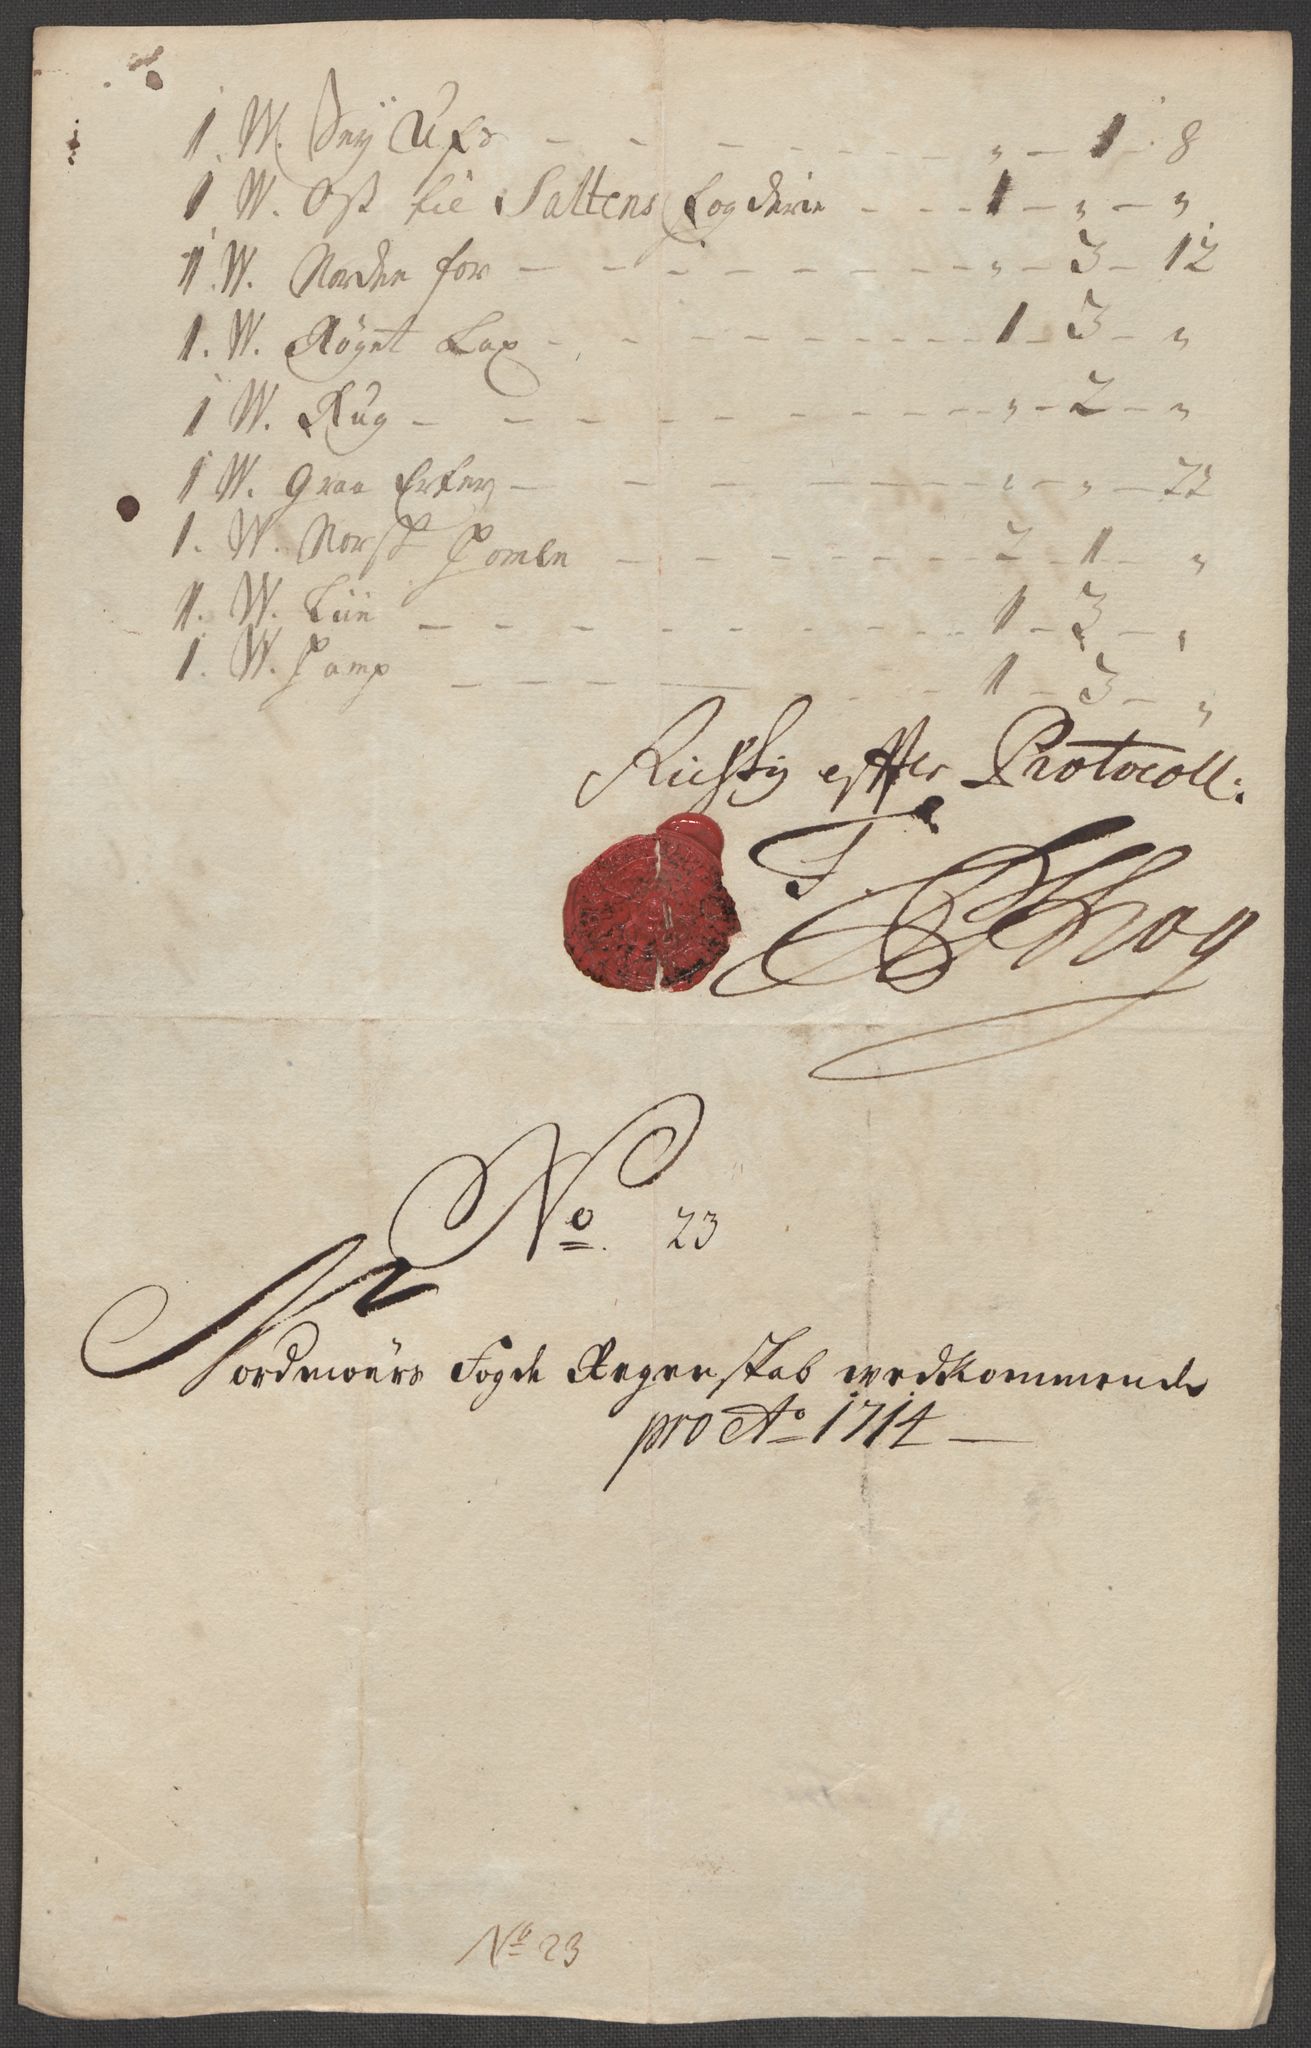 1 W. Seÿ Ufs - - - - - - „ - 1 - 8
1 W. Ost til Saltens Fogderie - - - 1 - „ - „
1 W. Norden for - - - - - - „ - 3 - 12
1. W. Røget Lax - - - - - - 1 - 3 - „
1 W. Rug - - - - - - „ - 2 - „
1 W. Graa Erter - - - - - - „ - „ - 22
1. W. Norsk Homle - - - - - - 2 - 1 - „
1. W. Liin - - - - - - 1 - 3 - „
1. W. Hamp - - - - - - 1 - 3 - „
Rigtig efter Protocoll:
No. 23
Nordmørs Fogde Regenskab vedkommende
pro Ao 1714 —
No 23